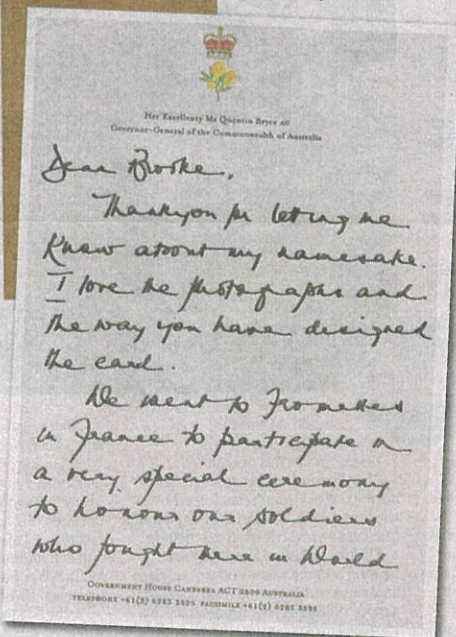 Her Excellency Ms Quentin Bryce AC
Governor-General of the Commonwealth of Australia
Dear Brooke,
Thankyou for letting me
know about my namesake.
I love the photographs and
the way you have designed
the card.
We went to Fromelles
in France to participate in
a very special ceremony
to honour our soldiers
who fought there in World
Government House Canberra ACT 2600 Australia
Telephone +61(2) 6283 Facsimile +61(2) 6281